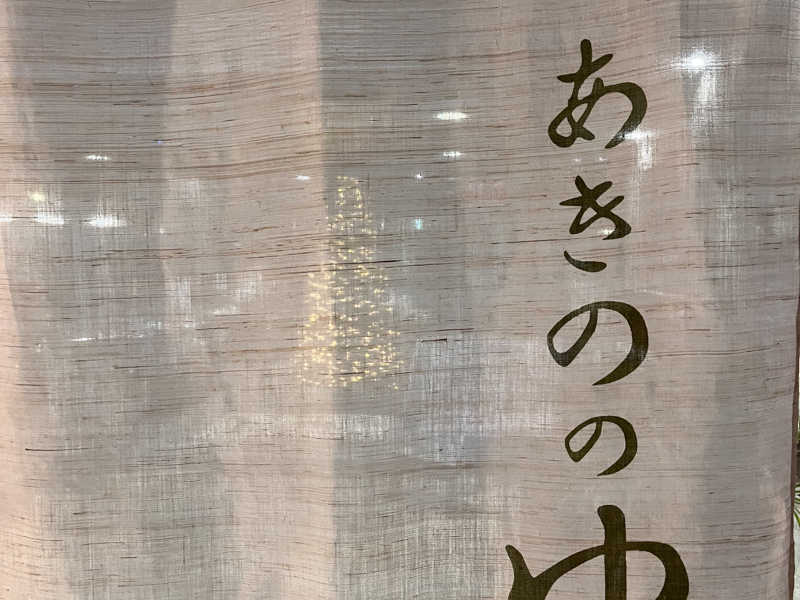 あきののゆ